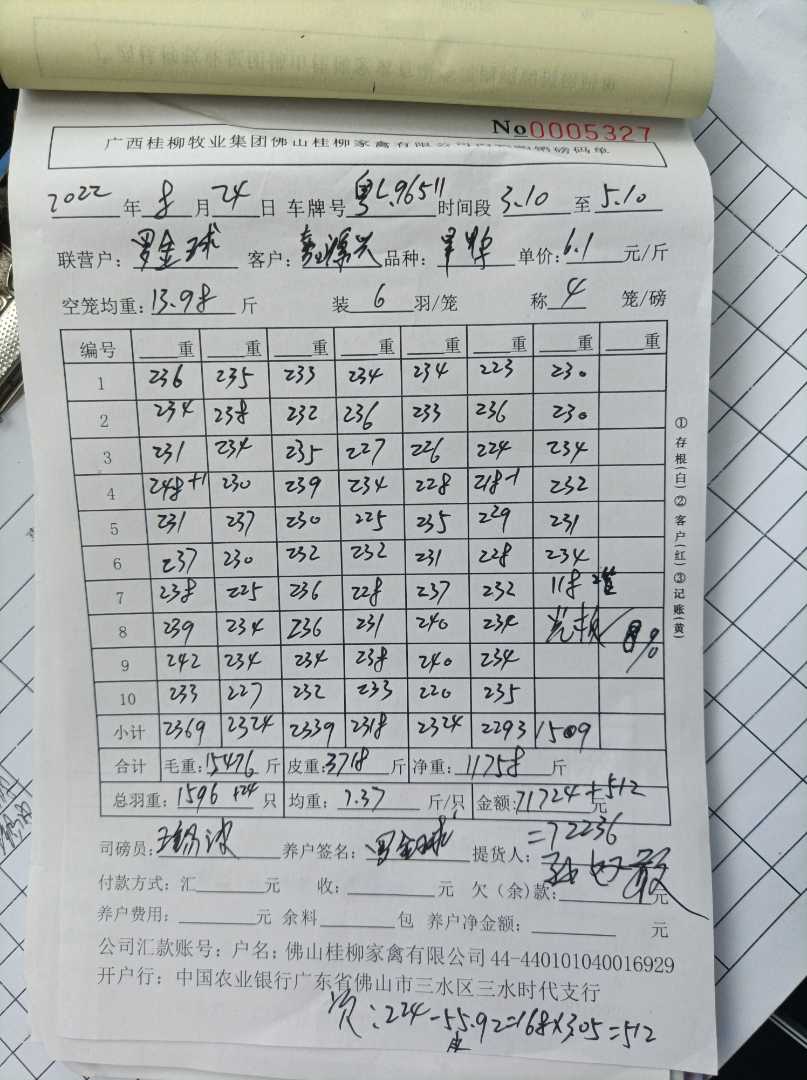 No 0005327
广西桂柳牧业集团佛山桂柳家禽有限公司 销磅码单
2022 年 8 月 24 日 车牌号 粤L.96511 时间段 3.10 至 5.10
联营户: 罗金球 客户: 品种: 单价: 6.1 元/斤
空笼均重: 13.98 斤 装 6 羽/笼 称 4 笼/磅
编号 重 重 重 重 重 重 重 重
1 236 235 233 234 234 223 230
2 234 238 232 236 233 236 230
3 231 234 235 227 226 224 234
4 248+1 230 239 234 228 218-1 232
5 231 237 230 225 235 229 231
6 237 230 232 232 231 228 234
7 238 225 236 228 237 232 118 2笼
8 239 234 236 231 240 234 8%
9 242 234 234 238 240 234
10 233 227 232 233 220 235
小计 2369 2324 2339 2318 2324 2293 1509
合计 毛重: 15476 斤 皮重: 3718 斤 净重: 11758 斤
总羽重: 1596 +24 只 均重: 7.37 斤/只 金额: 71724+512 元
=72236
司磅员: 养户签名: 罗金球 提货人:
付款方式: 汇 元 收: 元 欠(余)款: 元
养户费用: 元 余料 包 养户净金额: 元
公司汇款账号: 户名: 佛山桂柳家禽有限公司 44-440101040016929
开户行: 中国农业银行广东省佛山市三水区三水时代支行
次: 224-55.92=168×3.05=512
皮
①存根(白)②客户(红)③记账(黄)